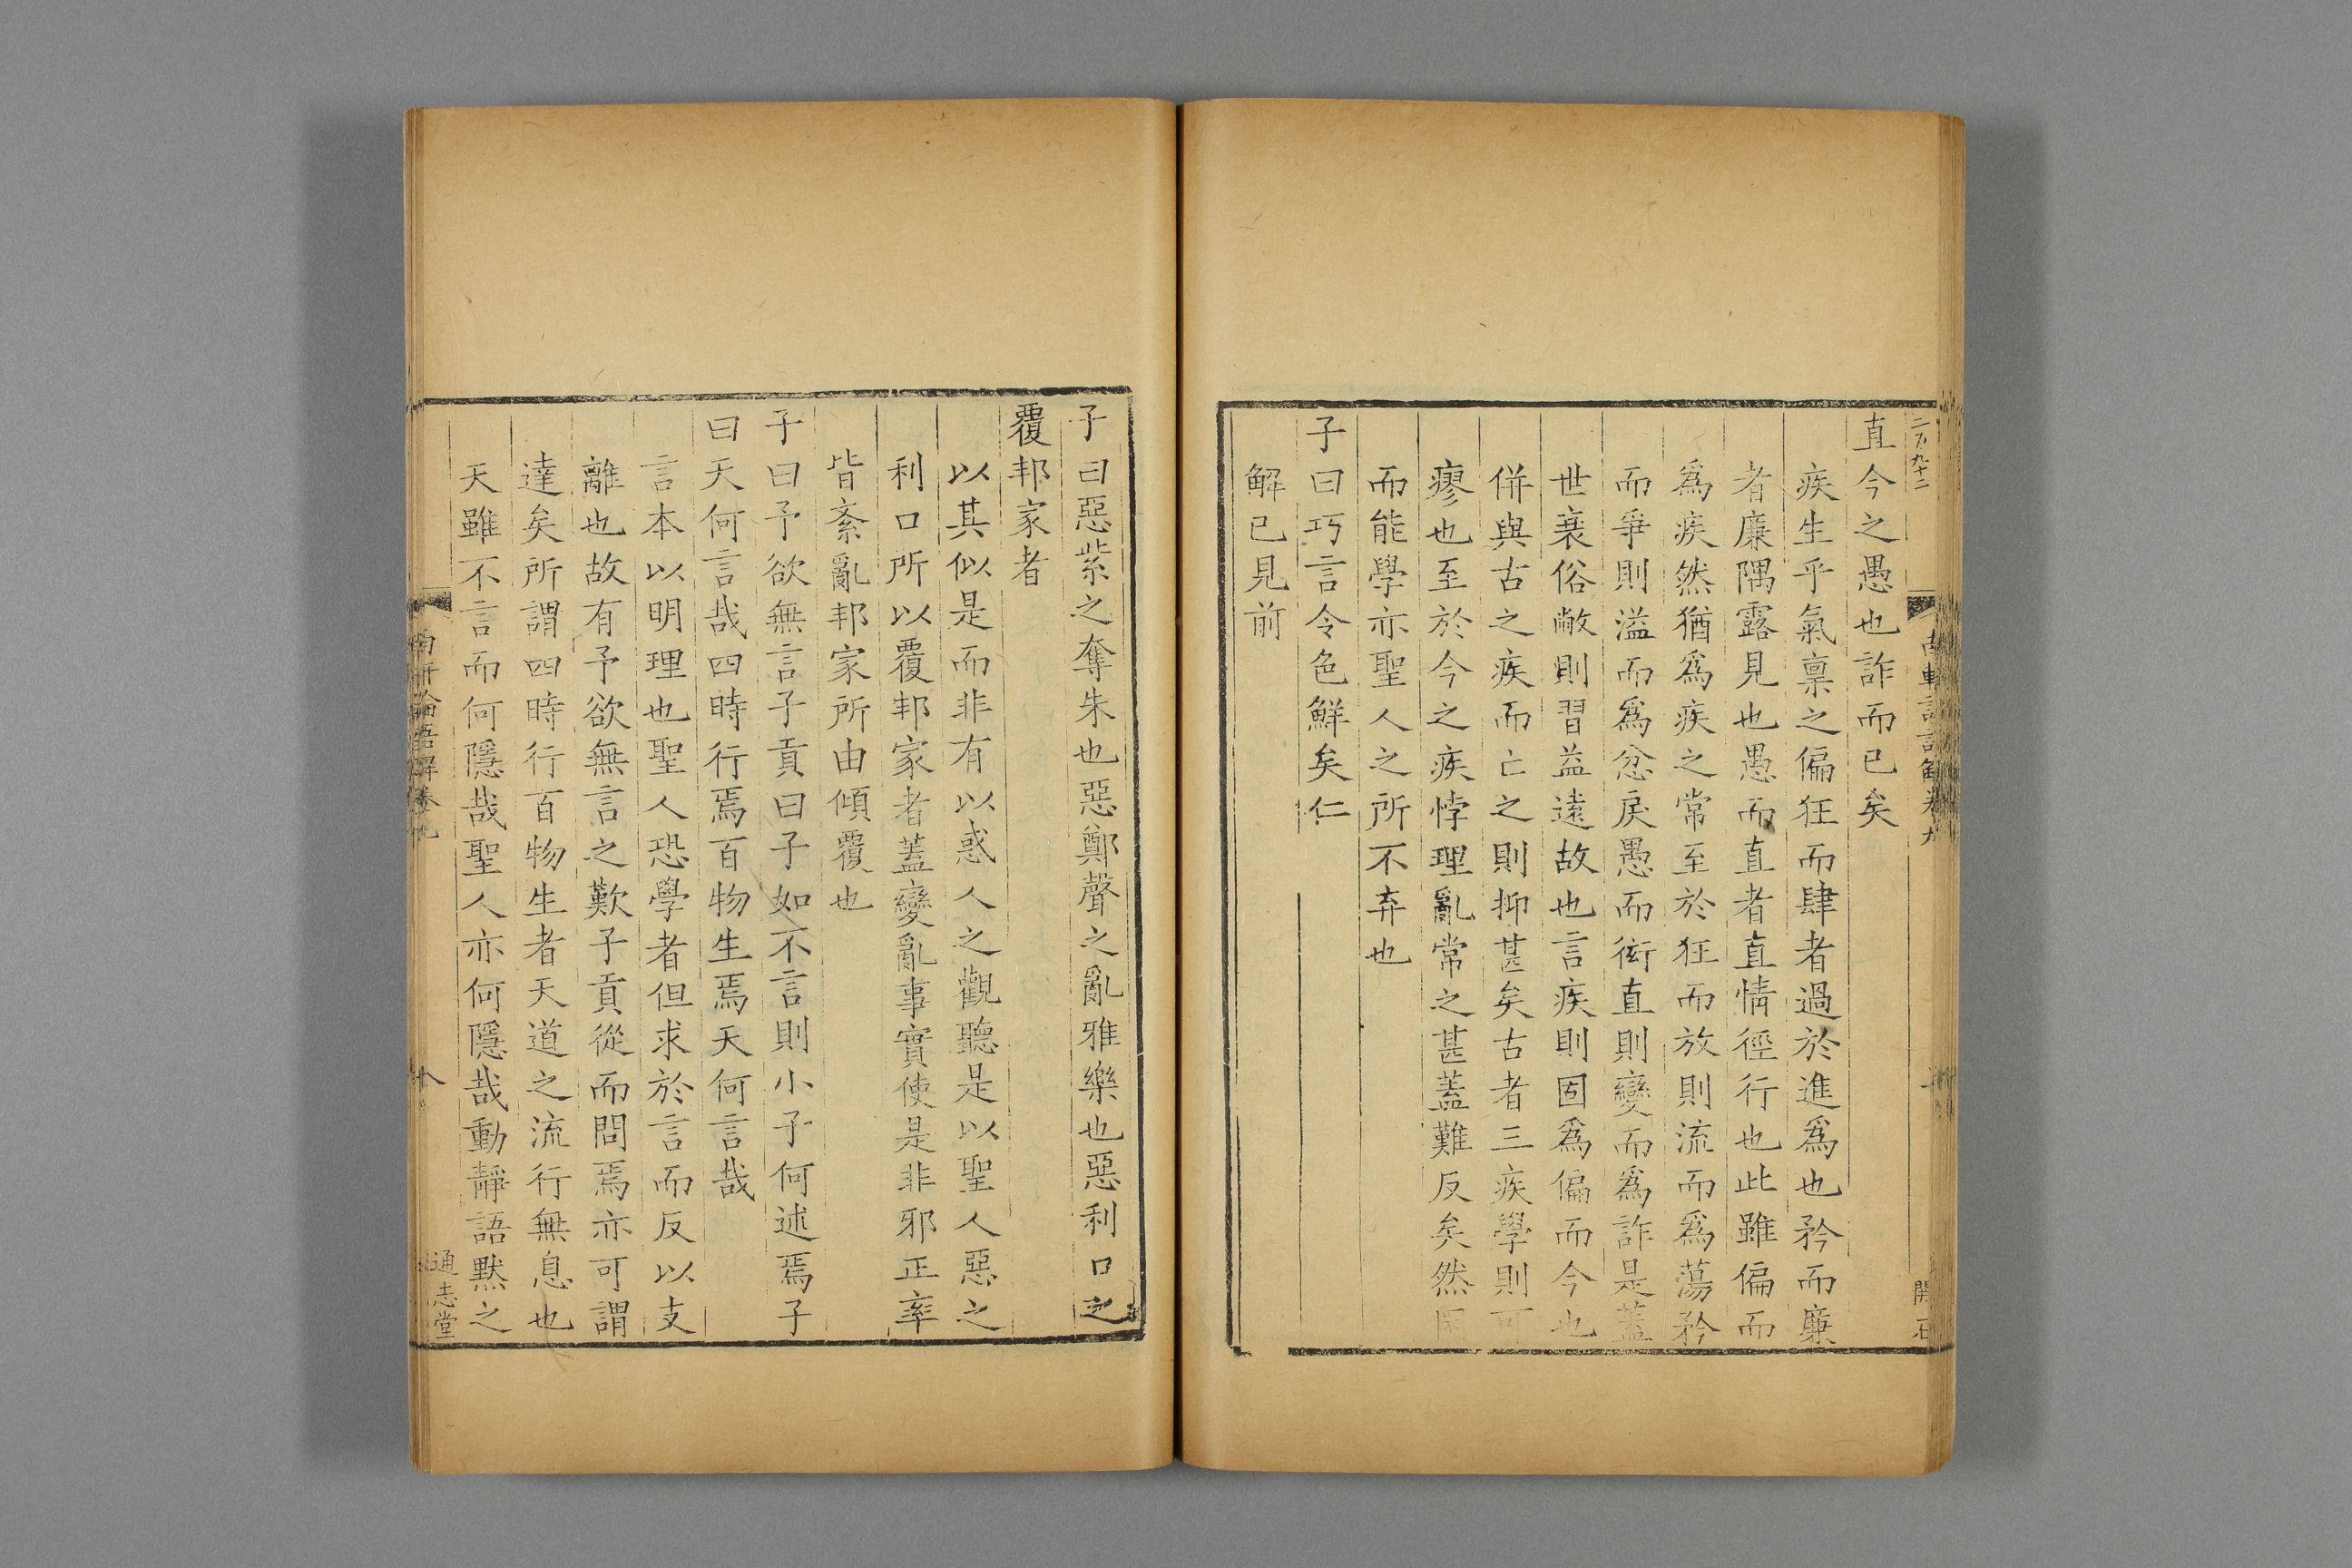 直今之愚也詐而已矣
疾生乎氣稟之偏狂而肆者過於進爲也矜而廉
者廉隅露見也愚而直者直情徑行也此雖偏而
爲疾然猶爲疾之常至於狂而放則流而爲蕩矜
而爭則溢而爲忿戾愚而衒直則變而爲詐是蓋
世衰俗敝則習益遠故也言疾則固爲偏而今也
併與古之疾而亡之則抑甚矣古者三疾學則可
瘳也至於今之疾悖理亂常之甚蓋難反矣然困
而能學亦聖人之所不弃也
子曰巧言令色鮮矣仁
解已見前
子曰惡紫之奪朱也惡鄭聲之亂雅樂也惡利口之
覆邦家者
以其似是而非有以惑人之觀聽是以聖人惡之
利口所以覆邦家者蓋變亂事實使是非邪正率
皆紊亂邦家所由傾覆也
子曰予欲無言子貢曰子如不言則小子何述焉子
曰天何言哉四時行焉百物生焉天何言哉
言本以明理也聖人恐學者但求於言而反以支
離也故有予欲無言之歎子貢從而問焉亦可謂
達矣所謂四時行百物生者天道之流行無息也
天雖不言而何隱哉聖人亦何隱哉動靜語黙之
南軒論語解卷九
通志堂